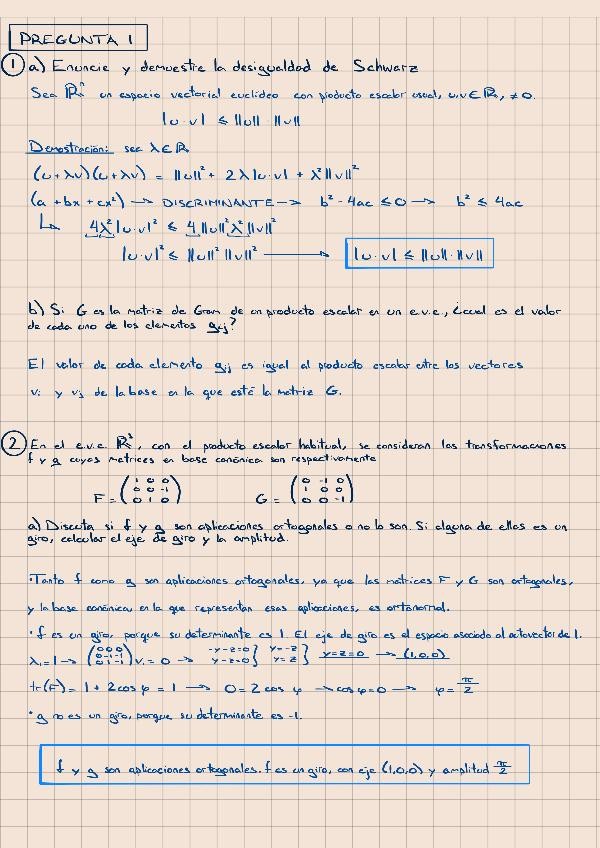 PREGUNTA 1
1 a) Enuncie y demuestre la desigualdad de Schwarz
Sea ℝⁿ un espacio vectorial euclídeo con producto escalar usual, u,v ∈ ℝ, ≠ 0.
|u·v| ≤ ||u||·||v||
Demostración: sea λ∈ℝ
(u+λv)(u+λv) = ||u||² + 2λ|u·v| + λ²||v||²
(a + bx + cx²) → DISCRIMINANTE → b² - 4ac ≤ 0 → b² ≤ 4ac
↳ 4λ²|u·v|² ≤ 4||u||²λ²||v||²
|u·v|² ≤ ||u||²||v||² → |u·v| ≤ ||u||·||v||
b) Si G es la matriz de Gram de un producto escalar en un e.v.e., ¿cuál es el valor
de cada uno de los elementos gij?
El valor de cada elemento gij es igual al producto escalar entre los vectores
vi y vj de la base en la que esté la matriz G.
2 En el e.v.e. ℝ³, con el producto escalar habitual, se consideran las transformaciones
f y g cuyas matrices en base canónica son respectivamente
F = (1 0 0 / 0 0 -1 / 0 1 0) G = (0 -1 0 / 1 0 0 / 0 0 -1)
a) Discuta si f y g son aplicaciones ortogonales o no lo son. Si alguna de ellas es un
giro, calcular el eje de giro y la amplitud.
·Tanto f como g son aplicaciones ortogonales, ya que las matrices F y G son ortogonales,
y la base canónica, en la que representan esas aplicaciones, es ortonormal.
·f es un giro, porque su determinante es 1. El eje de giro es el espacio asociado al autovector de 1.
λ₁=1 → (0 0 0 / 0 -1 -1 / 0 1 -1) v₁ = 0 → -y-z=0 / y-z=0 } y=-z / y=z } y=z=0 → (1,0,0)
tr(F) = 1 + 2cos φ = 1 → 0 = 2 cos φ → cos φ = 0 → φ = π/2
·g no es un giro, porque su determinante es -1.
f y g son aplicaciones ortogonales. f es un giro, con eje (1,0,0) y amplitud π/2